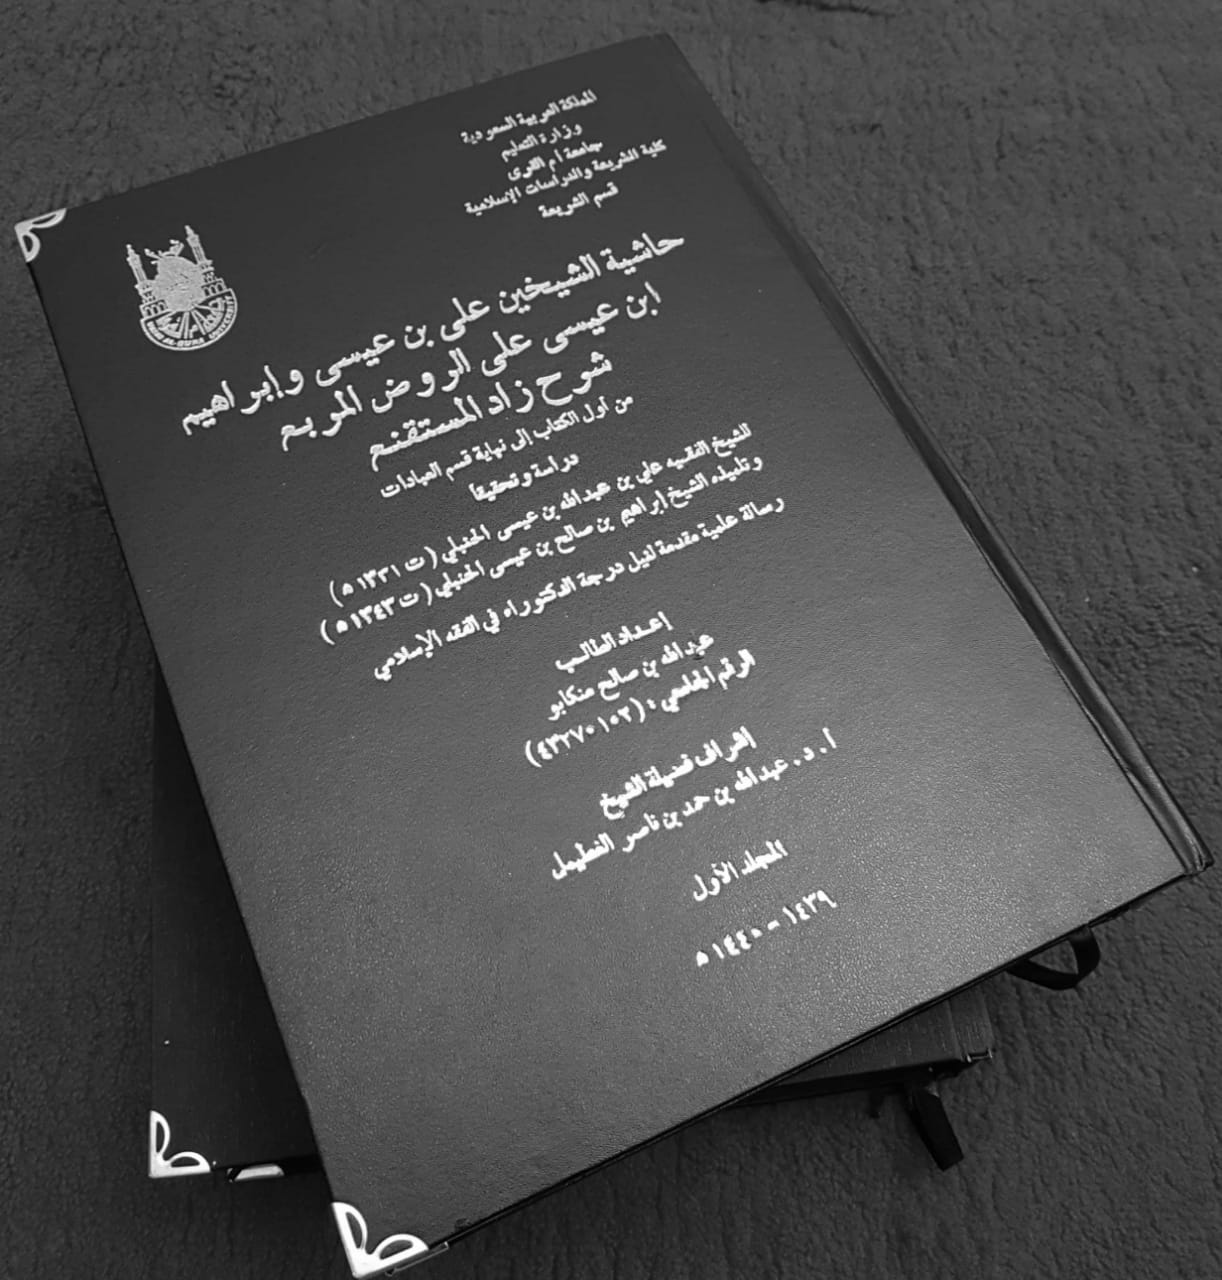 المملكة العربية السعودية
وزارة التعليم
جامعة أم القرى
كلية الشريعة والدراسات الإسلامية
قسم الشريعة
حاشية الشيخين علي بن عيسى وإبراهيم
ابن عيسى على الروض المربع
شرح زاد المستقنع
من أول الكتاب إلى نهاية قسم العبادات
دراسة وتحقيقا
للشيخ الفقيه علي بن عبدالله بن عيسى الحنبلي (ت ١٣٣١ ه)
وتلميذه الشيخ إبراهيم بن صالح بن عيسى الحنبلي (ت ١٣٤٣ ه)
رسالة علمية مقدمة لنيل درجة الدكتوراه في الفقه الإسلامي
إعداد الطالب
عبدالله بن صالح منكابو
الرقم الجامعي : (٤٣٢٧٠١٥٢)
إشراف فضيلة الشيخ
أ . د . عبدالله بن حمد بن ناصر الغطيمل
المجلد الأول
١٤٣٩ - ١٤٤٠ ه
UMM AL-QURA UNIVERSITY